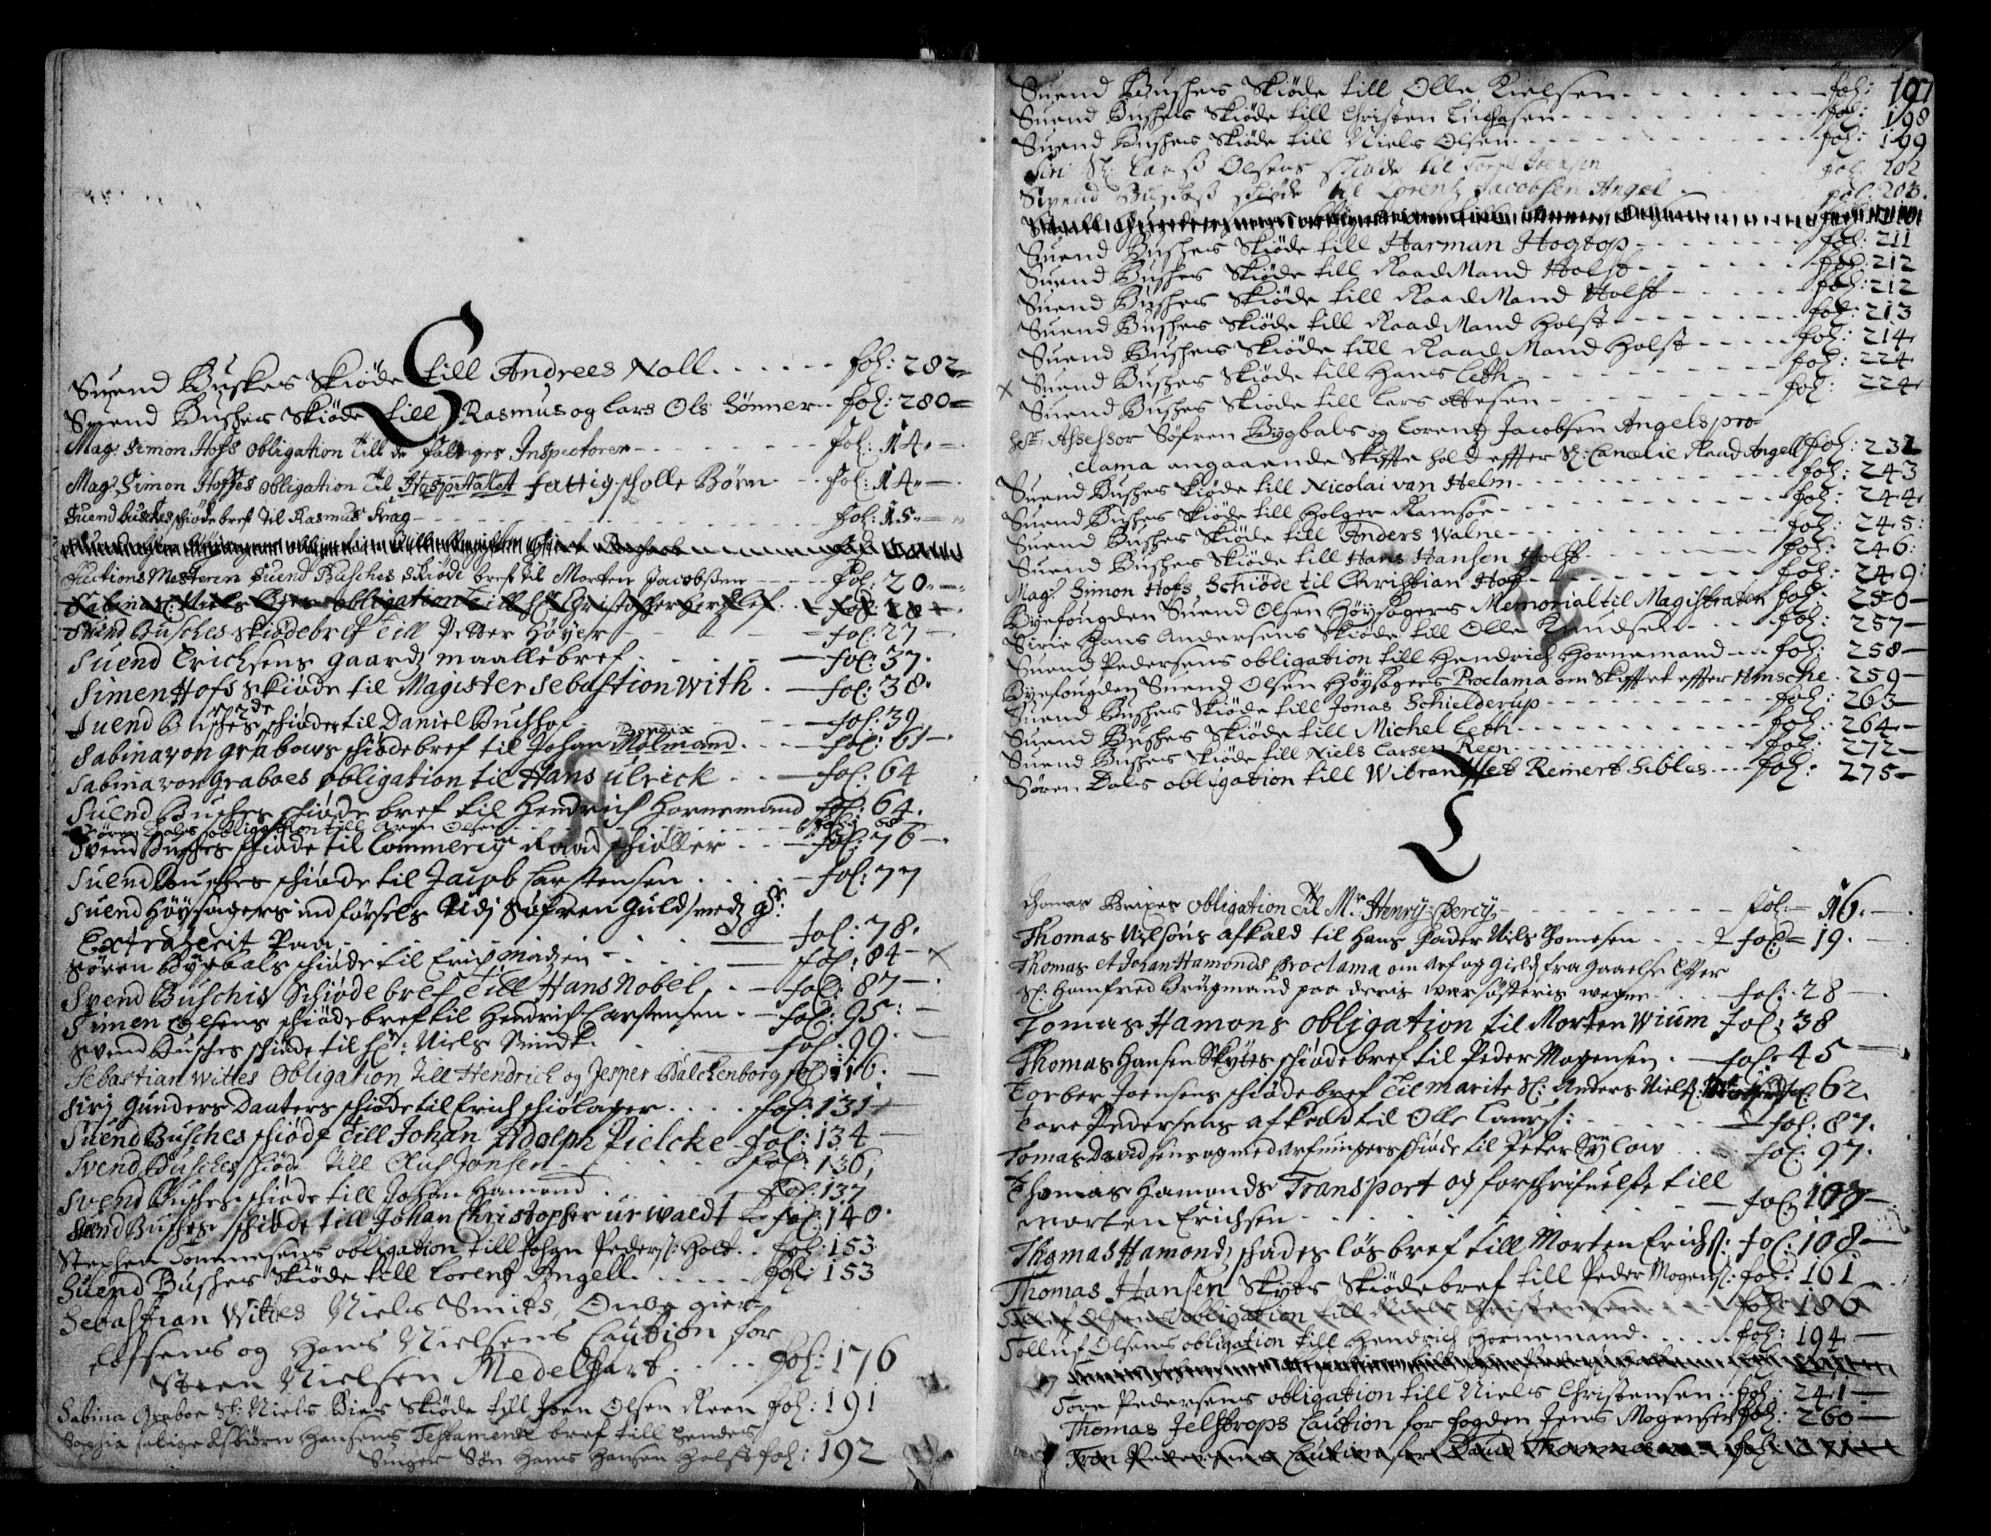 S
Suend Buskes Skiöde till Andrees Noll . . . . . . foh: 282
Suend Bushes Skiöde till Rasmus og Lars Ols Sönner . . foh: 280
Mag: Simon Hofs obligation till de Fattiges Inspectorer - - - foh: 14
Mag: Simon Hoffes obligation til Hospitalet fattig scholle Börn - - foh: 14
Suend Busches schiöde bref til Rasmus Krag - - - foh: 15
Auctions Mesteren Suend Busches Skiöde bref til Morten Jacobssen - - - - foh: 20
Suend Busches skiödebref till Petter Höyer - - foh: 27
Suend Erichsens gaardz maallebref . . . foh: 37
Simen Hofs Skiöde til Magister Sebastion With . - foh: 38
Suend Busches schiöde til Daniel Buchhof . - foh: 39
Sabina von Grabows schiödebref til Johan Molmand . . . - foh: 61
Sabina von Graboes obligation til Hans Ulrick . . - foh: 64
Suend Busches schiöde bref til Hendrich Hornemand foh: 64
Sören Dahls obligation till Aren Olsen - - - foh: 68
Svend Busches schiöde til Commerie Raad Schiöller . . - foh: 76
Suend Busches schiöde til Jacob Carstensen . . . . - foh: 77
Suend Höysagers indförsels Vidj Söfren Guldsmedz
Extraherit Paa . . . . foh: 78
Sören Bygbals schiöde til Erich Madzen - . . . - foh: 84 - x
Svend Buschis Schiöde bref till Hans Nobel . . - foh: 87
Simen Olsens schiödebref til Hendrich Carstensen . - foh: 95
Svend Busches schiöde til Hr: Niels Smidt . . - foh: 99
Sebastian Wittes Obligation till Hendrich og Jesper Balckenborg foh: 116
Sirj Gunders Dauters schiöde til Erich Schiölager . . . . foh: 131
Suend Busches schiöde till Johan Adolph Pielcke - foh: 134
Svend Busches schiöde till Oluf Jonsen . . . . foh: 136
Svend Busches schiöde till Johan Hamond . . . foh: 137
Suend Busches schiöde till Johan Christopher urwaldt - foh: 140
Stephen Tommesens obligation till Johan Peders: Holt . . foh: 153
Suend Bushes Skiöde till Lorentz Angell . . . . . foh: 153
Sebastian Wittes Niels Smits, Ouve
og Hans Nielsens Caution for
Steen Nielsen Medelfart . . . . foh: 176
Sabina Graboe Sl: Niels Bies Skiöde till Joen Olsen Reen foh: 191
Sophia salige Esbiörn Hansens Testamente bref till hendes
Sön Hans Hansen Holst foh: 192
Suend Bushes Skiöde till Olle Kielsen . . . . . foh: 197
Suend Bushes Skiöde till Christen - - - foh: 198
Suend Bushes Skiöde till Niels Olsen . . - - - foh: 199
Siri Sl: Larss Olsens schiöde til Joensen foh: 202
Svend Buskes schiöde til Lorentz Jacobsen Angel - foh: 203
Suend Bushes Skiöde till Harman Hogtop - - - - foh: 211
Suend Bushes Skiöde till RaadMand Holst - - - foh: 212
Suend Bushes Skiöde till RaadMand Holst - - - foh: 212
Suend Bushes Skiöde till RaadMand Holst - - - - foh: 213
Suend Bushes Skiöde till Raad Mand Holst - - - - - foh: 214
x Suend Bushes Skiöde till Hans Leth - - - foh: 224
Suend Bushes Skiöde till Lars Ottesen - - - foh: 224
Assessor Söfren Bygbals og Lorentz Jacobsen Angels pro
clama angaaende Skiffte hold effter Sl: Cancelie Raad Angell foh: 232
Suend Bushes Skiöde till Nicolai van Helm . . - foh: 243
Suend Bushes Skiöde till Holger Ramsöe - - - foh: 244
Suend Bushes Skiöde till Anders Walne - - - foh: 245
Suend Bushes Skiöde till Hans Hansen Holst - - foh: 246
Mag: Simon Hofs Schiöde til Christian Hof - - - foh: 249
Byefougden Suend Olsen Höysagers Memorial til Magistraten foh: 250
Sirie Hans Andersens Skiöde till Olle Knudsen - - foh: 257
Suend Pedersens obligation till Hendrich Hornemand - - foh: 258
Byefougden Suend Olsen Höysagers Proclama om Skiftet effter . 259
Suend Bushes Skiöde till Jonas Schielderup - - - foh: 263
Suend Bushes Skiöde till Michel Leth - - - foh: 264
Suend Bushes Skiöde till Niels Larsen Reen - - - foh: 272
Sören Dals obligation till Reinert Sibles . . . foh: 275
T
Thomas Brixes obligation til Mr. Henry Percy - - - foh: 16
Thomas Nielsöns afkald til Hans Fader Niels Thomesen . . . foh: 19
Thomas et Johan Hamonds Proclama om Arf og Gield fragaaelse Effter
Sl: Hamfred Brügmand paa deris wegne . . foh: 28
Tomas Hamons obligation til Morten Wium foh: 38
Thomas Hansen Skytes schiödebref til Peder Mogensen . - foh: 45
Torber Joensens schiödebref til Marite Sl: Anders Niels: foh: 62
Tore Pedersens afkald til Olle Laurs: . . . foh: 87
Tomas Davidsens og medarfvingers schiöde til Peter Low . . foh: 97
Thomas Hamonds Transport og forschrifvelse till
Morten Erichsen . . . . foh: 107
Thomas Hamonds schades lös bref till Morten Erichs: foh: 108
Thomas Hansen Skyts Skiödebref till Peder Mogens: foh: 161
Tolluf Olsens obligation till Niels Christensen foh: 186
Tolluf Olsens obligation till Hendrich Hornemand . . . . foh: 194
Tore Pedersens obligation till Niels Christensen . . foh: 241
Thomas Jelstrops Caution for fogden Jens Mogensen foh: 260